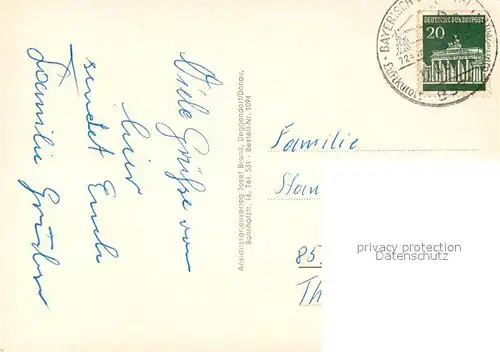 Viele Grüße von
hier
sendet Euch
Familie
Ansichtskartenverlag Josef Brand, Deggendorf/Donau,
Bahnhofstr. 16, Tel. 551 - Bestell-Nr. 1094
BAYERISCH
DEUTSCHE BUNDESPOST
20
Familie
Stan
85.
Th
privacy protection
Datenschutz